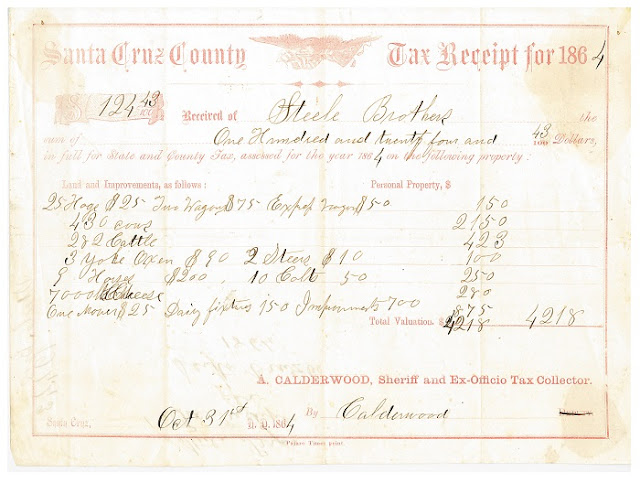 Santa Cruz County Tax Receipt for 1864
$ 124 43/100 Received of Steele Brothers the
sum of One Hundred and twenty four and 43/100 Dollars,
in full for State and County Tax, assessed for the year 1864 on the following property:
Land and Improvements, as follows: Personal Property, $
25 Hogs $25 Two Wagons $75 Express Wagon $50 150
430 cows 2150
282 Cattle 423
3 Yoke Oxen $90 2 Steers $10 100
9 Horses $200, 10 Colt 50 250
7000 Cheese 280
One Mower $25 Dairy fixtures 150 Improvments 700 875
Total Valuation. $ 4218 4218
A. CALDERWOOD, Sheriff and Ex-Officio Tax Collector.
Santa Cruz, Oct 31st A. D. 1864 By Calderwood
Times print.